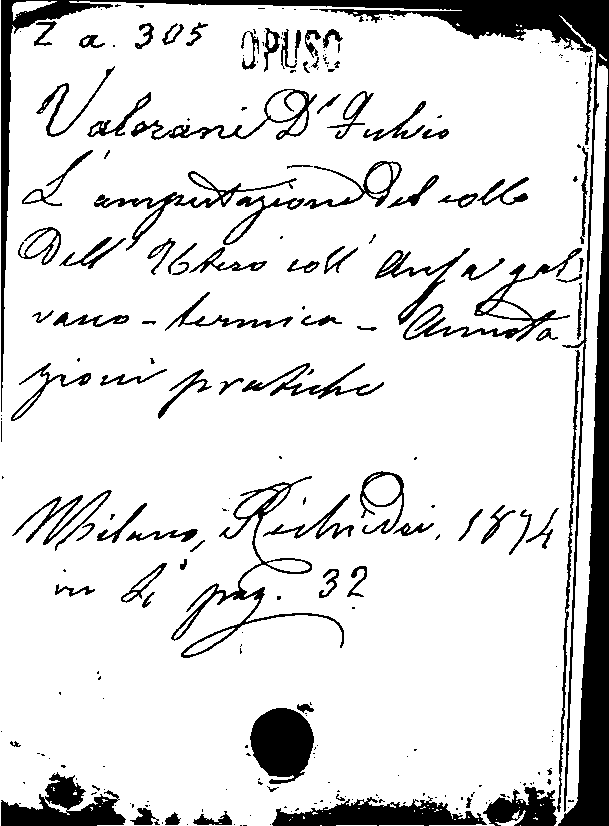 Z a. 305 OPUSC
Valorani Dr Fulvio
L'amputazione del collo
dell'Utero coll'Ansa gal
vano-termica - Annota-
zioni pratiche
Milano, Rechiedei, 1874
in 4° pag. 32